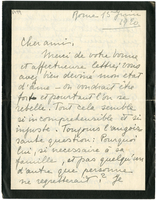 Rome 15 juin
1920
Cher ami,
Merci de votre bonne
et affectueuse lettre; vous
avez bien deviné mon état
d'âme - on voudrait être
fort et pourtant l'on se
rebelle; tout cela semble
si incompréhensible et si
injuste. Toujours l'angois-
sante question: Pourquoi
lui, si nécessaire à sa
famille, et pas quelqu'un
d'autre que personne
ne regretterait? Je